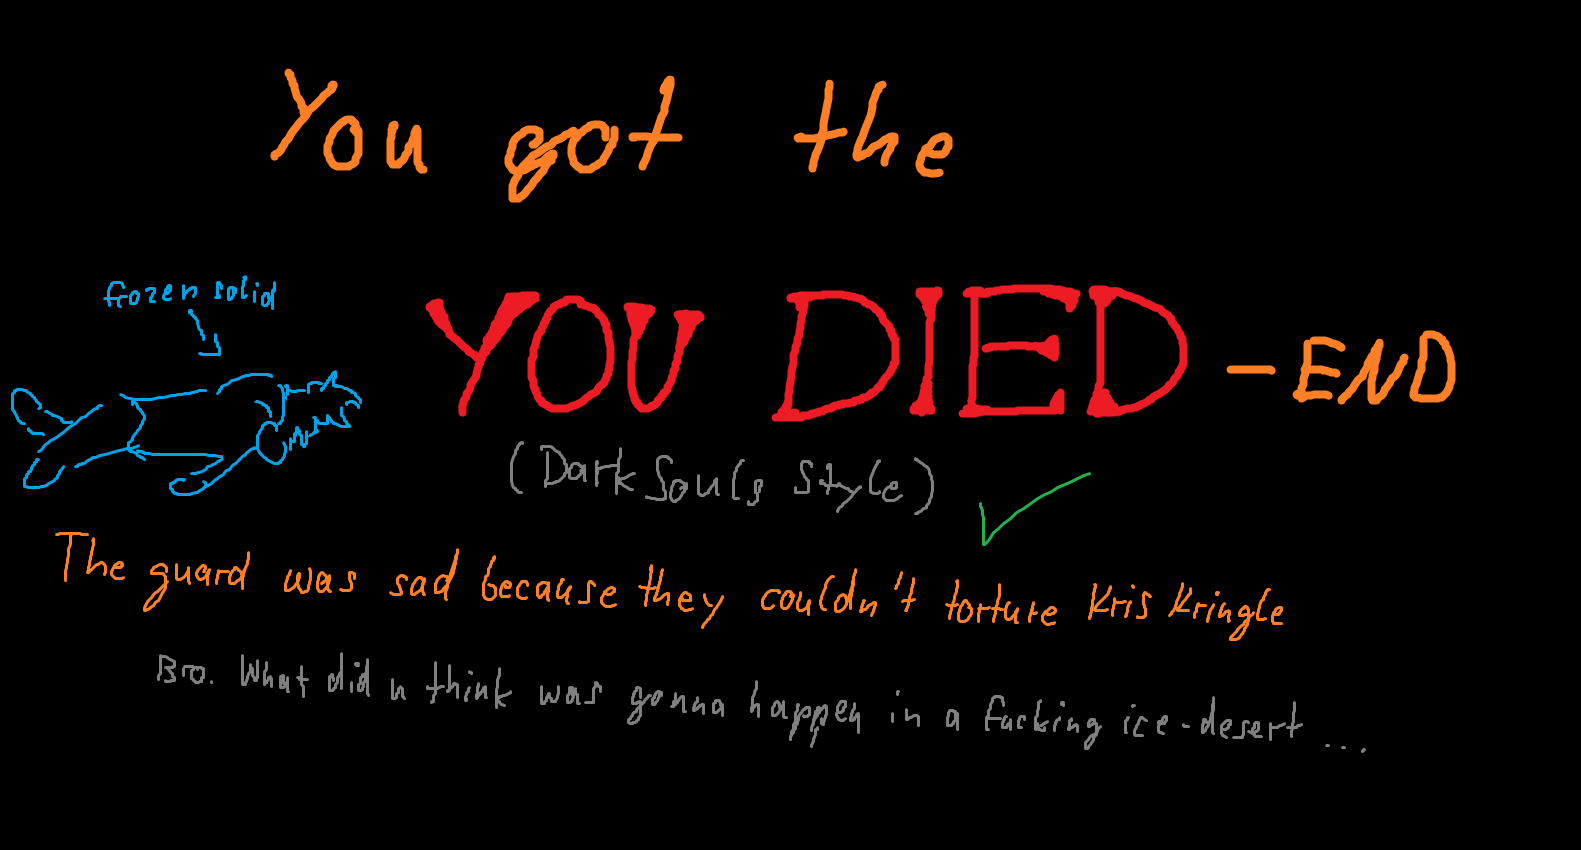 You got the
frozen solid
YOU DIED -END
(Dark Souls Style)
The guard was sad because they couldn't torture Kris Kringle
Bro. What did u think was gonna happen in a fucking ice-desert ...